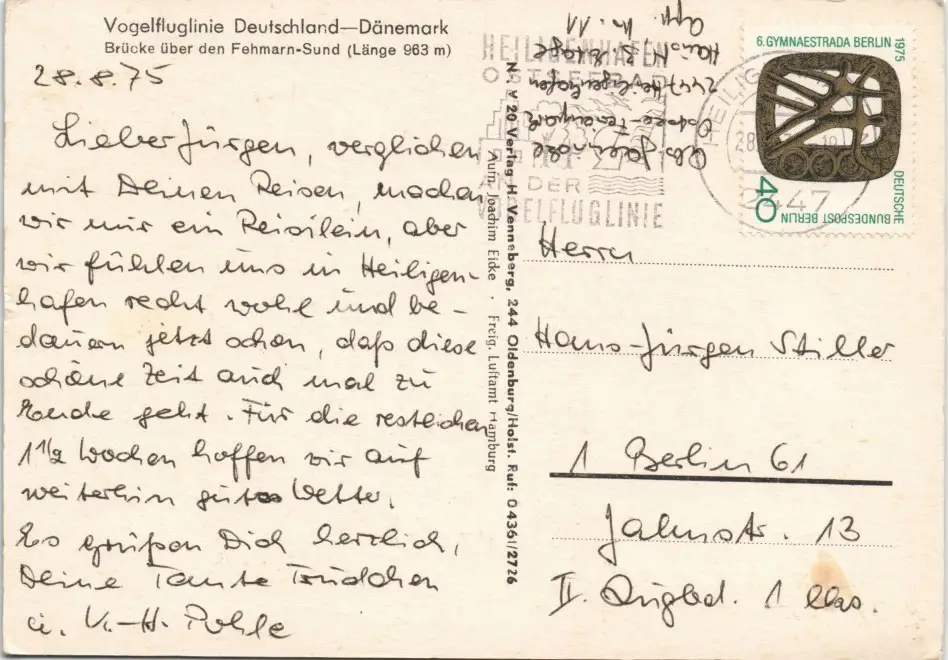 Vogelfluglinie Deutschland—Dänemark
Brücke über den Fehmarn-Sund (Länge 963 m)
28.8.75
Lieber Jürgen, verglichen
mit Deinen Reisen, machen
wir nur ein Reislein, aber
wir fühlen uns in Heiligen-
hafen recht wohl und be-
dauern jetzt schon, daß diese
schöne Zeit auch mal zu
Ende geht. Für die restlichen
1 1/2 Wochen hoffen wir auf
weiterhin gutes Wetter.
Es grüßen Dich herzlich,
Deine Tante Trudchen
u. K.-H. Pohle
Nr. V 20 Verlag H. Venneberg, 244 Oldenburg/Holst. Ruf: 04361/2726
Aufn. Joachim Eicke · Freig. Luftamt Hamburg
Ostsee-Ferienpark
2447 Heiligenhafen
Haus H, 2. Etage
App. Nr. 11
HEILIGENHAFEN
OSTSEEBAD
AN DER
VOGELFLUGLINIE
HEILIG
28
2447
6. GYMNAESTRADA BERLIN 1975
DEUTSCHE BUNDESPOST BERLIN
40
Herrn
Hans-Jürgen Stiller
1 Berlin 61
Jahnstr. 13
II. Quergbd. 1 lks.